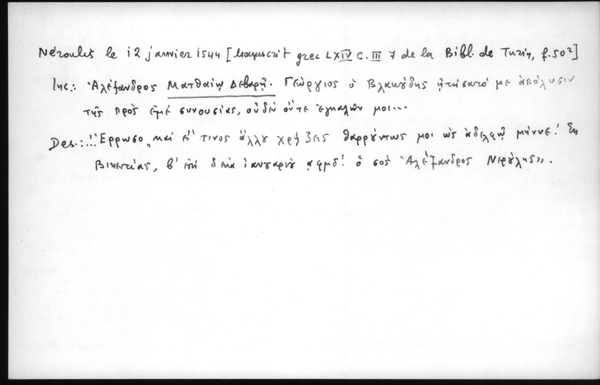 Néroulis le 12 janvier 1544 [Manuscrit grec LXIV C. III 7 de la Bibl. de Turin, f. 50²]
Inc.: Ἀλέξανδρος Ματθαίῳ Δεβαρῇ. Γεώργιος ὁ Βλανύδης ᾐτήσατό με ἀπόλυσιν
τῆς πρὸς ἐμὲ συνουσίας, οὐδὲν οὔτε ἐγκαλῶν μοι...
Des.: Ἔρρωσο, καὶ εἴ τινος ἄλλου χρῄζεις θαρρούντως μοι ὡς ἀδελφῷ μήνυε! Ἐκ
Βικεντίας, β' ἐπὶ δέκα ἰανουαρίου ͵αφμδ! ὁ σὸς Ἀλέξανδρος Νερούλης».